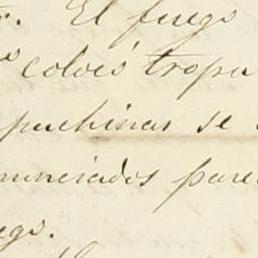 El fuego
colocó tropa
puchinas se
nunciados pare
ego.